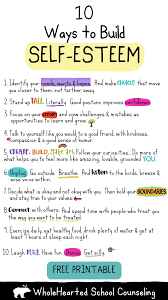 10
Ways to Build
SELF-ESTEEM
1. Identify your needs, wants & hopes. And make CHOICES that move
you closer to them, not farther away
2. Stand up TALL. Literally. Good posture improves confidence
3. Focus on your effort and view challenges & mistakes as
opportunities to learn and grow
4. Talk to yourself like you would to a good friend: with kindness,
compassion & a good sense of humor
5. CREATE, BUILD, MAKE ART. Follow your curiosities...Do more of
what helps you to feel more like amazing, lovable, grounded YOU
6. Unplug. Go outside. Breathe. And listen to the birds, breeze &
your own wise voice within
7. Decide what is okay and not okay with you. Then hold your BOUNDARIES
and stay true to your values
8. Connect with others. And spend time with people who treat you
the way you want to be treated
9. Exercise daily, eat healthy food, drink plenty of water & get at
least 8 hours of sleep each night
10. Laugh. PLAY. Have fun. Dance. Get silly.
FREE PRINTABLE
WHOLEHEARTED SCHOOL COUNSELING